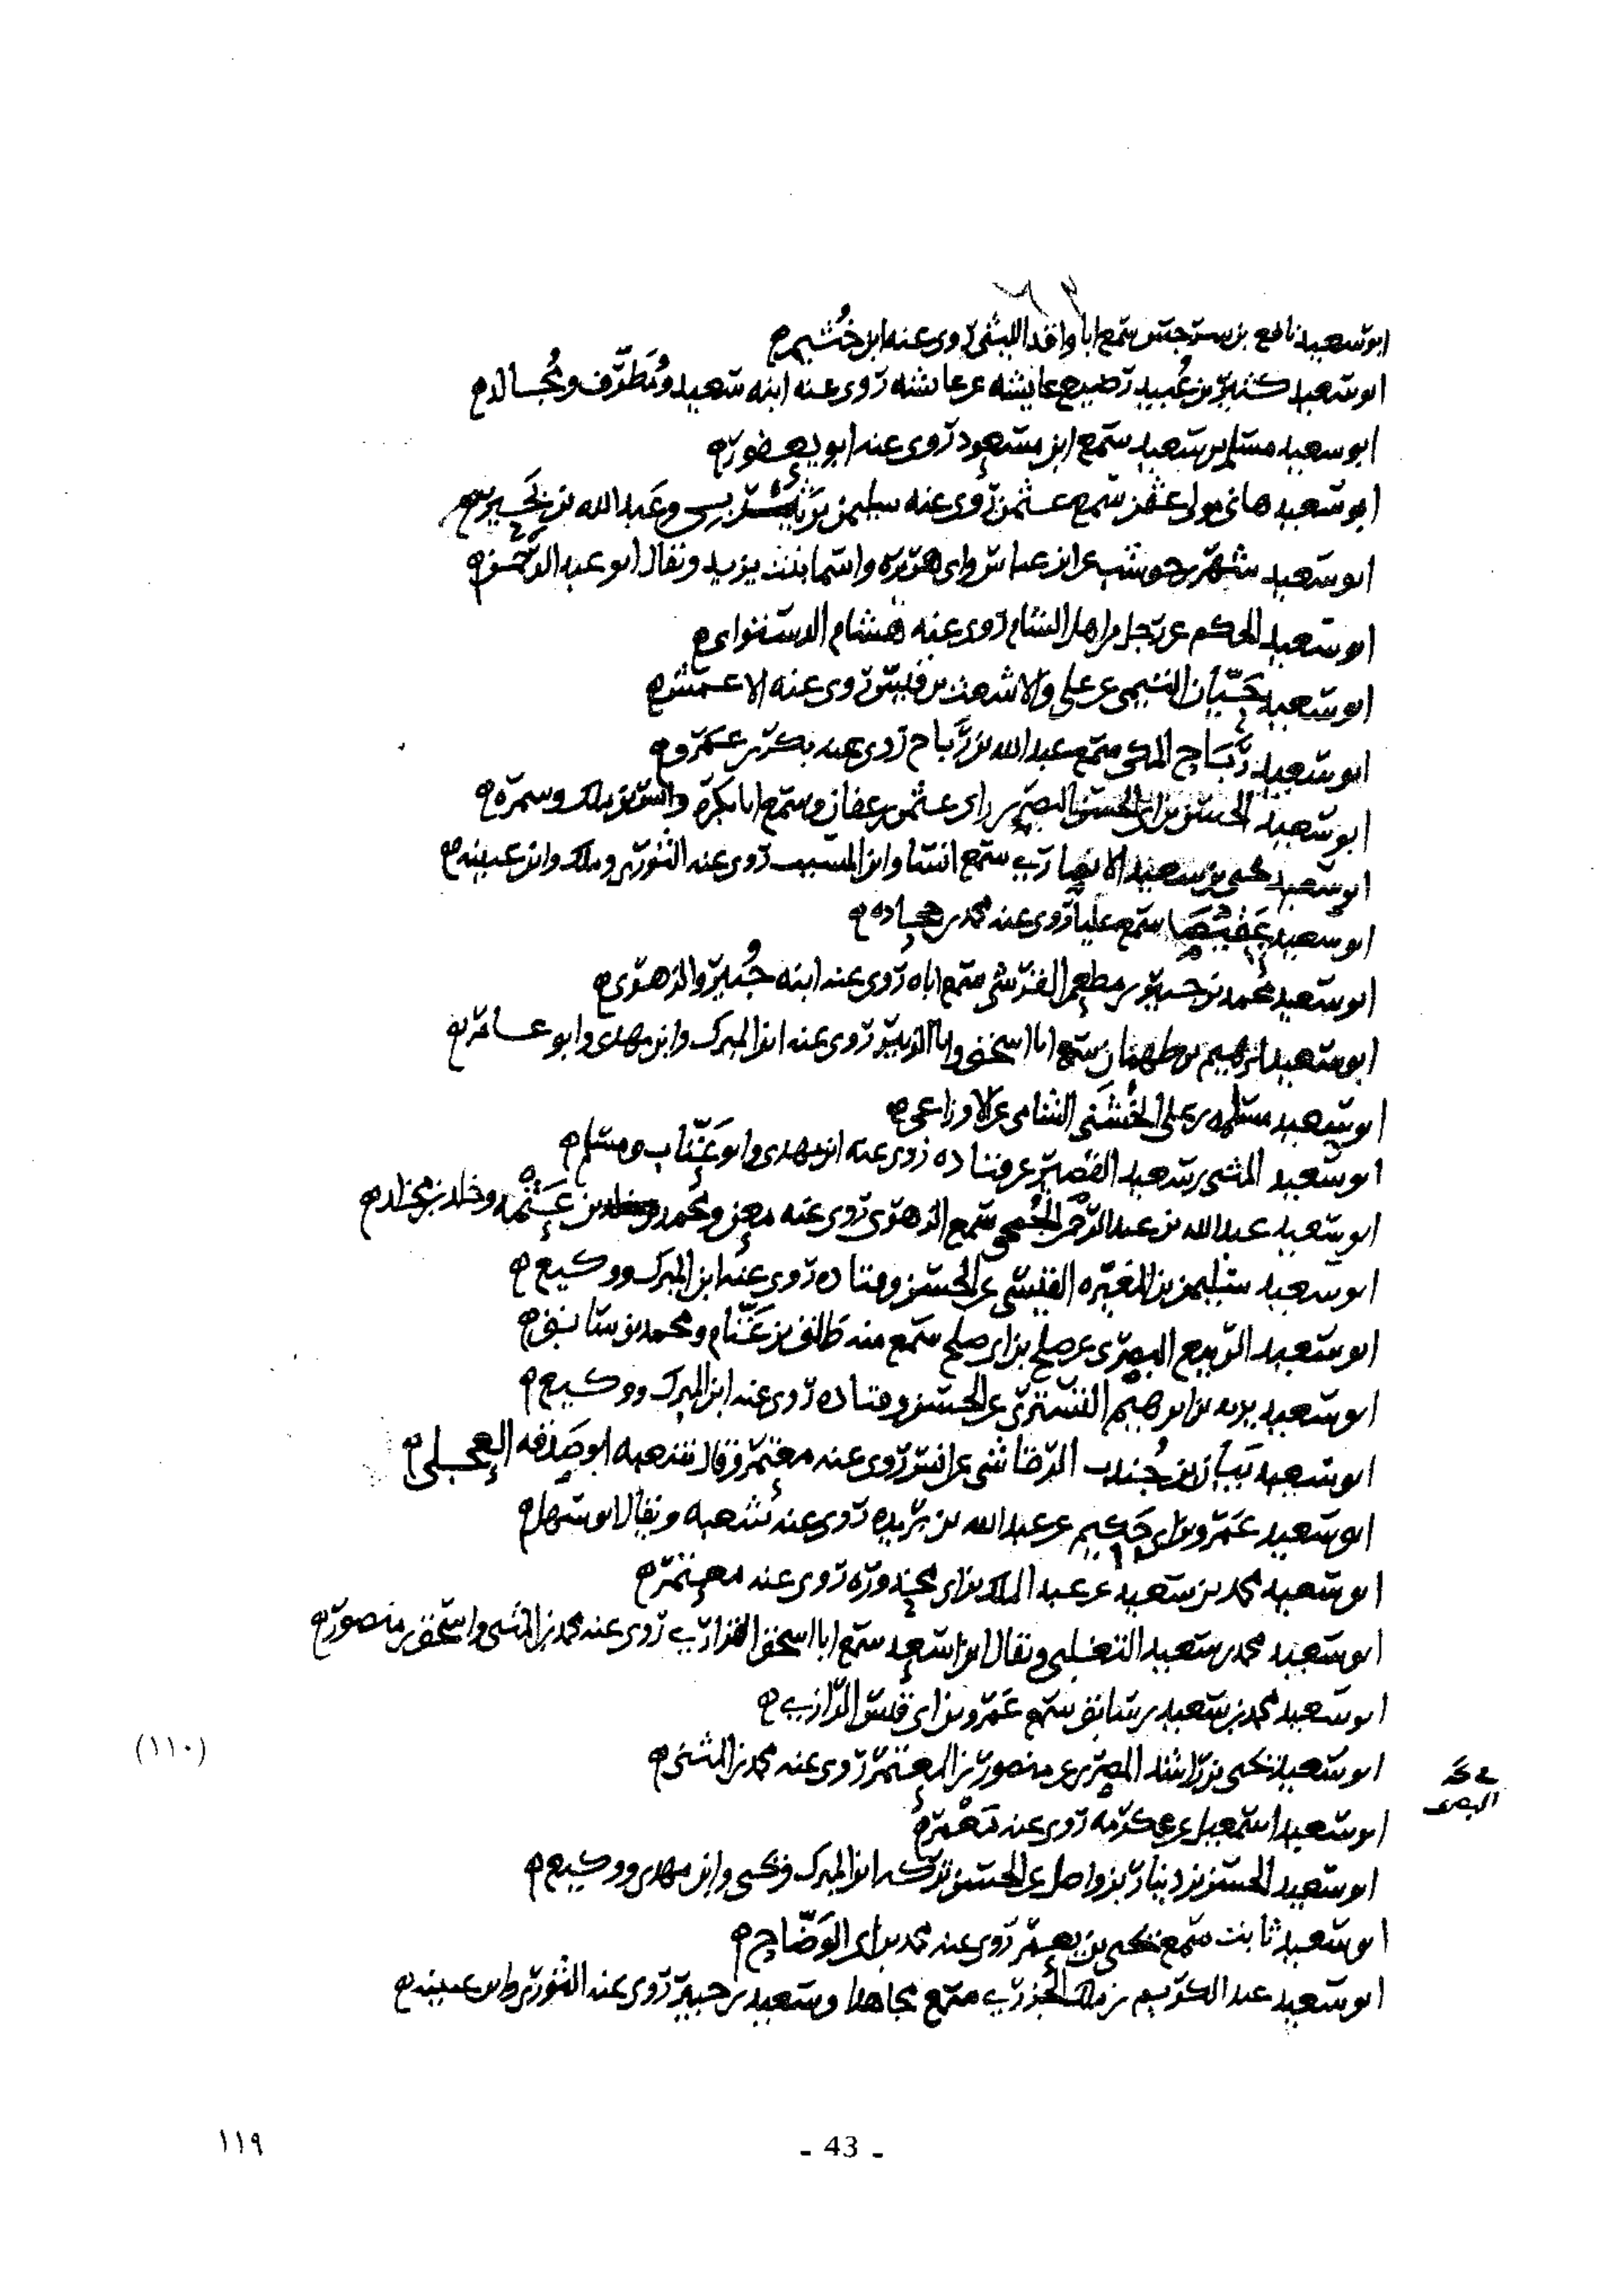 ابو سعيد نافع بن سرجس سمع ابا واقد الليثى روى عنه ابن خثيم
ابو سعيد كثير بن عبيد رضيع عايشه عن عايشه روى عنه ابنه سعيد ومطرف ومجالد
ابو سعيد مسلم بن سعيد سمع ابن مسعود روى عنه ابو يعفور
ابو سعيد هانى مولى عثمن سمع عثمن روى عنه سليمن بن يثربى وعبد الله بن بحير
ابو سعيد شهر بن حوشب عن ابن عباس وابى هريره واسما بنت يزيد ويقال ابو عبد الرحمن
ابو سعيد الحكم عن رجل من اهل الشام روى عنه هشام الدستوائى
ابو سعيد حيان التيمى عن على والاشعث بن قيس روى عنه الاعمش
ابو سعيد رباح المكى سمع عبد الله بن رباح روى عنه بكر بن عمرو
ابو سعيد الحسن بن ابى الحسن البصرى راى عثمن بن عفان وسمع ابا بكرة وانس بن ملك وسمرة
ابو سعيد يحيى بن سعيد الانصارى سمع انسا وابن المسيب روى عنه الثورى وملك وابن عيينه
ابو سعيد عقيصا سمع عليا روى عنه محمد بن جحاده
ابو سعيد محمد بن جبير بن مطعم القرشى سمع اباه روى عنه ابنه جبير والزهرى
ابو سعيد ابرهيم بن طهمان سمع ابا اسحق وابا الزبير روى عنه ابن المبرك وابن مهدى وابو عامر
ابو سعيد مسلمه بن على الخشنى الشامى عن الاوزاعى
ابو سعيد المثنى بن سعيد القصير عن قتاده روى عنه ابن مهدى وابو عتاب ومسلم
ابو سعيد عبد الله بن عبد الرحمن الجمحى سمع الزهرى روى عنه معن ومحمد بن خالد بن عثمه وخلد بن مخلد
ابو سعيد سليمن بن المغيره القيسى عن الحسن وقتاده روى عنه ابن المبرك ووكيع
ابو سعيد الربيع البصرى عن صلح بن ابى صلح سمع منه طلق بن غنام ومحمد بن سابق
ابو سعيد يزيد بن ابرهيم التسترى عن الحسن وقتاده روى عنه ابن المبرك ووكيع
ابو سعيد بيان بن جندب الرقاشى عن انس روى عنه معتمر وقال شعبه ابو صدقه العجلى
ابو سعيد عمرو بن ابى حكيم عن عبد الله بن بريده روى عنه شعبه ويقال ابو سهل
ابو سعيد محمد بن سعيد عن عبد الملك بن ابى محذوره روى عنه معتمر
ابو سعيد محمد بن سعيد التغلبى ويقال ابن اسعد سمع ابا اسحق الفزارى روى عنه محمد بن المثنى واسحق بن منصور
ابو سعيد محمد بن سعيد بن سابق سمع عمرو بن ابى قيس الرازى
(١١٠)
ابو سعيد يحيى بن راشد البصرى عن منصور بن المعتمر روى عنه محمد بن المثنى
البصرى
ابو سعيد اسمعيل عن عكرمه روى عنه
ابو سعيد الحسن بن دينار بن واصل عن الحسن تركه ابن المبرك ويحيى وابن مهدى ووكيع
ابو سعيد ثابت سمع يحيى بن يعمر روى عنه محمد بن ابى الوضاح
ابو سعيد عبد الكريم بن ملك الجزرى سمع مجاهدا وسعيد بن جبير روى عنه الثورى وابن عيينه
- 43 -
١١٩